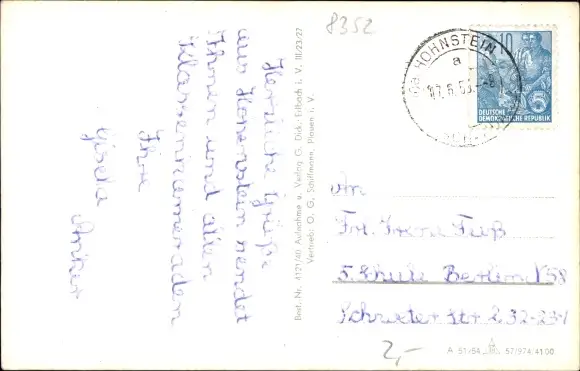 8352
Herzliche Grüße
aus Hohnstein sendet
Ihnen und allen
Klassenkameraden
Ihre
Gisela
Best. Nr. 4121/40 Aufnahme u. Verlag G. Dick, Erlbach i. V. III/23/27
Vertrieb: O. G. Schiffmann, Plauen i. V.
HOHNSTEIN
a
10
DEUTSCHE
DEMOKRATISCHE REPUBLIK
5
An
Frl. Irene Fuß
5. Schule Berlin N 58
Str. 232-234
2,-
A 51/54 57/974/4100